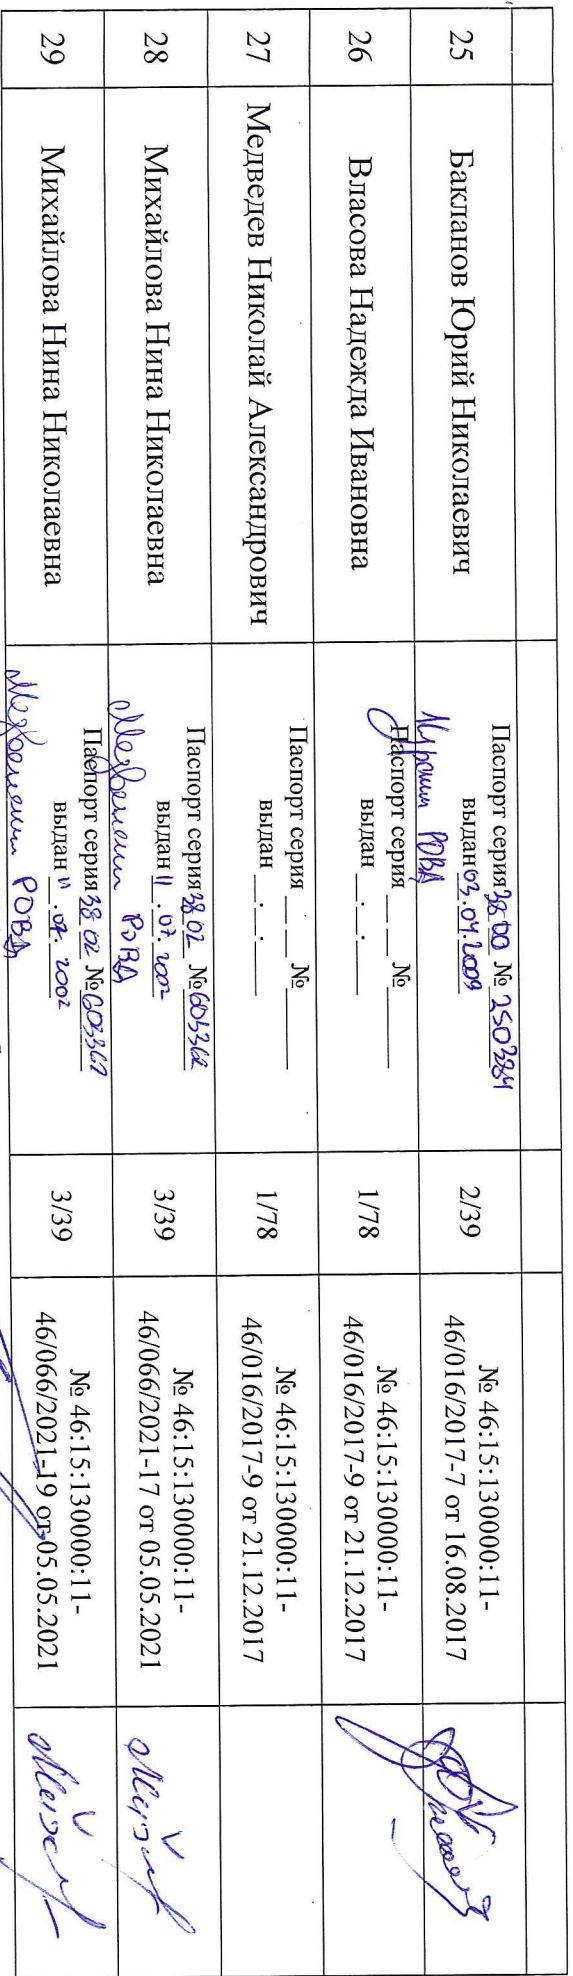 25
Бакланов Юрий Николаевич
Паспорт серия 38 00 № 250284
выдан 03.04.2009
РОВД
2/39
№ 46:15:130000:11-
46/016/2017-7 от 16.08.2017
26
Власова Надежда Ивановна
Паспорт серия __ __ № ______
выдан __.__.____
1/78
№ 46:15:130000:11-
46/016/2017-9 от 21.12.2017
27
Медведев Николай Александрович
Паспорт серия __ __ № ______
выдан __.__.____
1/78
№ 46:15:130000:11-
46/016/2017-9 от 21.12.2017
28
Михайлова Нина Николаевна
Паспорт серия 38 02 № 603362
выдан 11.07.2002
РОВД
3/39
№ 46:15:130000:11-
46/066/2021-17 от 05.05.2021
29
Михайлова Нина Николаевна
Паспорт серия 38 02 № 603367
выдан 11.07.2002
РОВД
3/39
№ 46:15:130000:11-
46/066/2021-19 от 05.05.2021